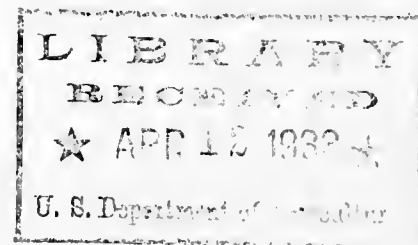 LIBRARY
RECEIVED
★ APR ★
U. S. Department of Agriculture